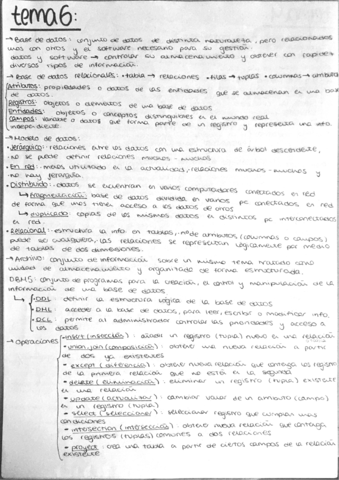 tema 6:
→ Base de datos: conjunto de datos de distinta naturaleza, pero relacionados
unos con otros y el software necesario para su gestión
datos y software → controlar su almacenamiento y obtener con rapidez
diversos tipos de información
→ Base de datos relacionales: • tabla → relaciones • filas → tuplas • columnas → atributos
Atributos: propiedades o datos de las entidades que se almacenan en una base
de datos
Registros: objetos o elementos de una base de datos
Entidades: objetos o conceptos distinguibles en el mundo real
Campos: variable o datos que forma parte de un registro y representa una
independiente
→ Modelo de datos:
• Jerárquico: relaciones entre los datos con una estructura de árbol descendente,
no se puede definir relaciones muchos - muchos
• En red: menos utilizado en la actualidad, relaciones muchos - muchos y
no muy
• Distribuido: datos se encuentran en varios computadores conectados en red
↳ Fragmentación: base de datos dividida en varios pc conectados en red
de forma que unos tiene acceso a los datos de otros
↳ replicado: copias de los mismos datos en distintos pc interconectados
en red
• Relacional: estructura la info en tablas, nº de atributos (columnas o campos)
puede ser cualquiera, las relaciones se representan lógicamente por medio
de tablas de dos dimensiones.
→ Archivo: conjunto de información sobre un mismo tema tratado como
unidad de almacenamiento y organizado de forma estructurada.
DBMS: conjunto de programas para la creación, el control y manipulación de la
información de una base de datos
↳ • DDL: definir la estructura lógica de la base de datos
• DML: acceso a la base de datos, para leer, escribir o modificar info.
• DCL: permite al administrador controlar las prioridades y acceso a
los datos
→ Operaciones: • insert (inserción): añadir un registro (tupla) nuevo en una relación
• union, join (composición): obtiene una nueva relación a partir
de dos ya existentes
• except (diferencia): obtiene nueva relación que contenga los registros
de la primera relación que no estén en la segunda
• delete (eliminación): eliminar un registro (tupla) existente
en una relación
• update (actualizar): cambiar valor de un atributo (campo)
en un registro (tupla)
• select (seleccionar): seleccionar registro que cumplan unas
condiciones
• intersection (intersección): obtiene nueva relación que contenga
los registros (tuplas) comunes a dos relaciones
• project: crea una tabla a partir de ciertos campos de la relación
existente